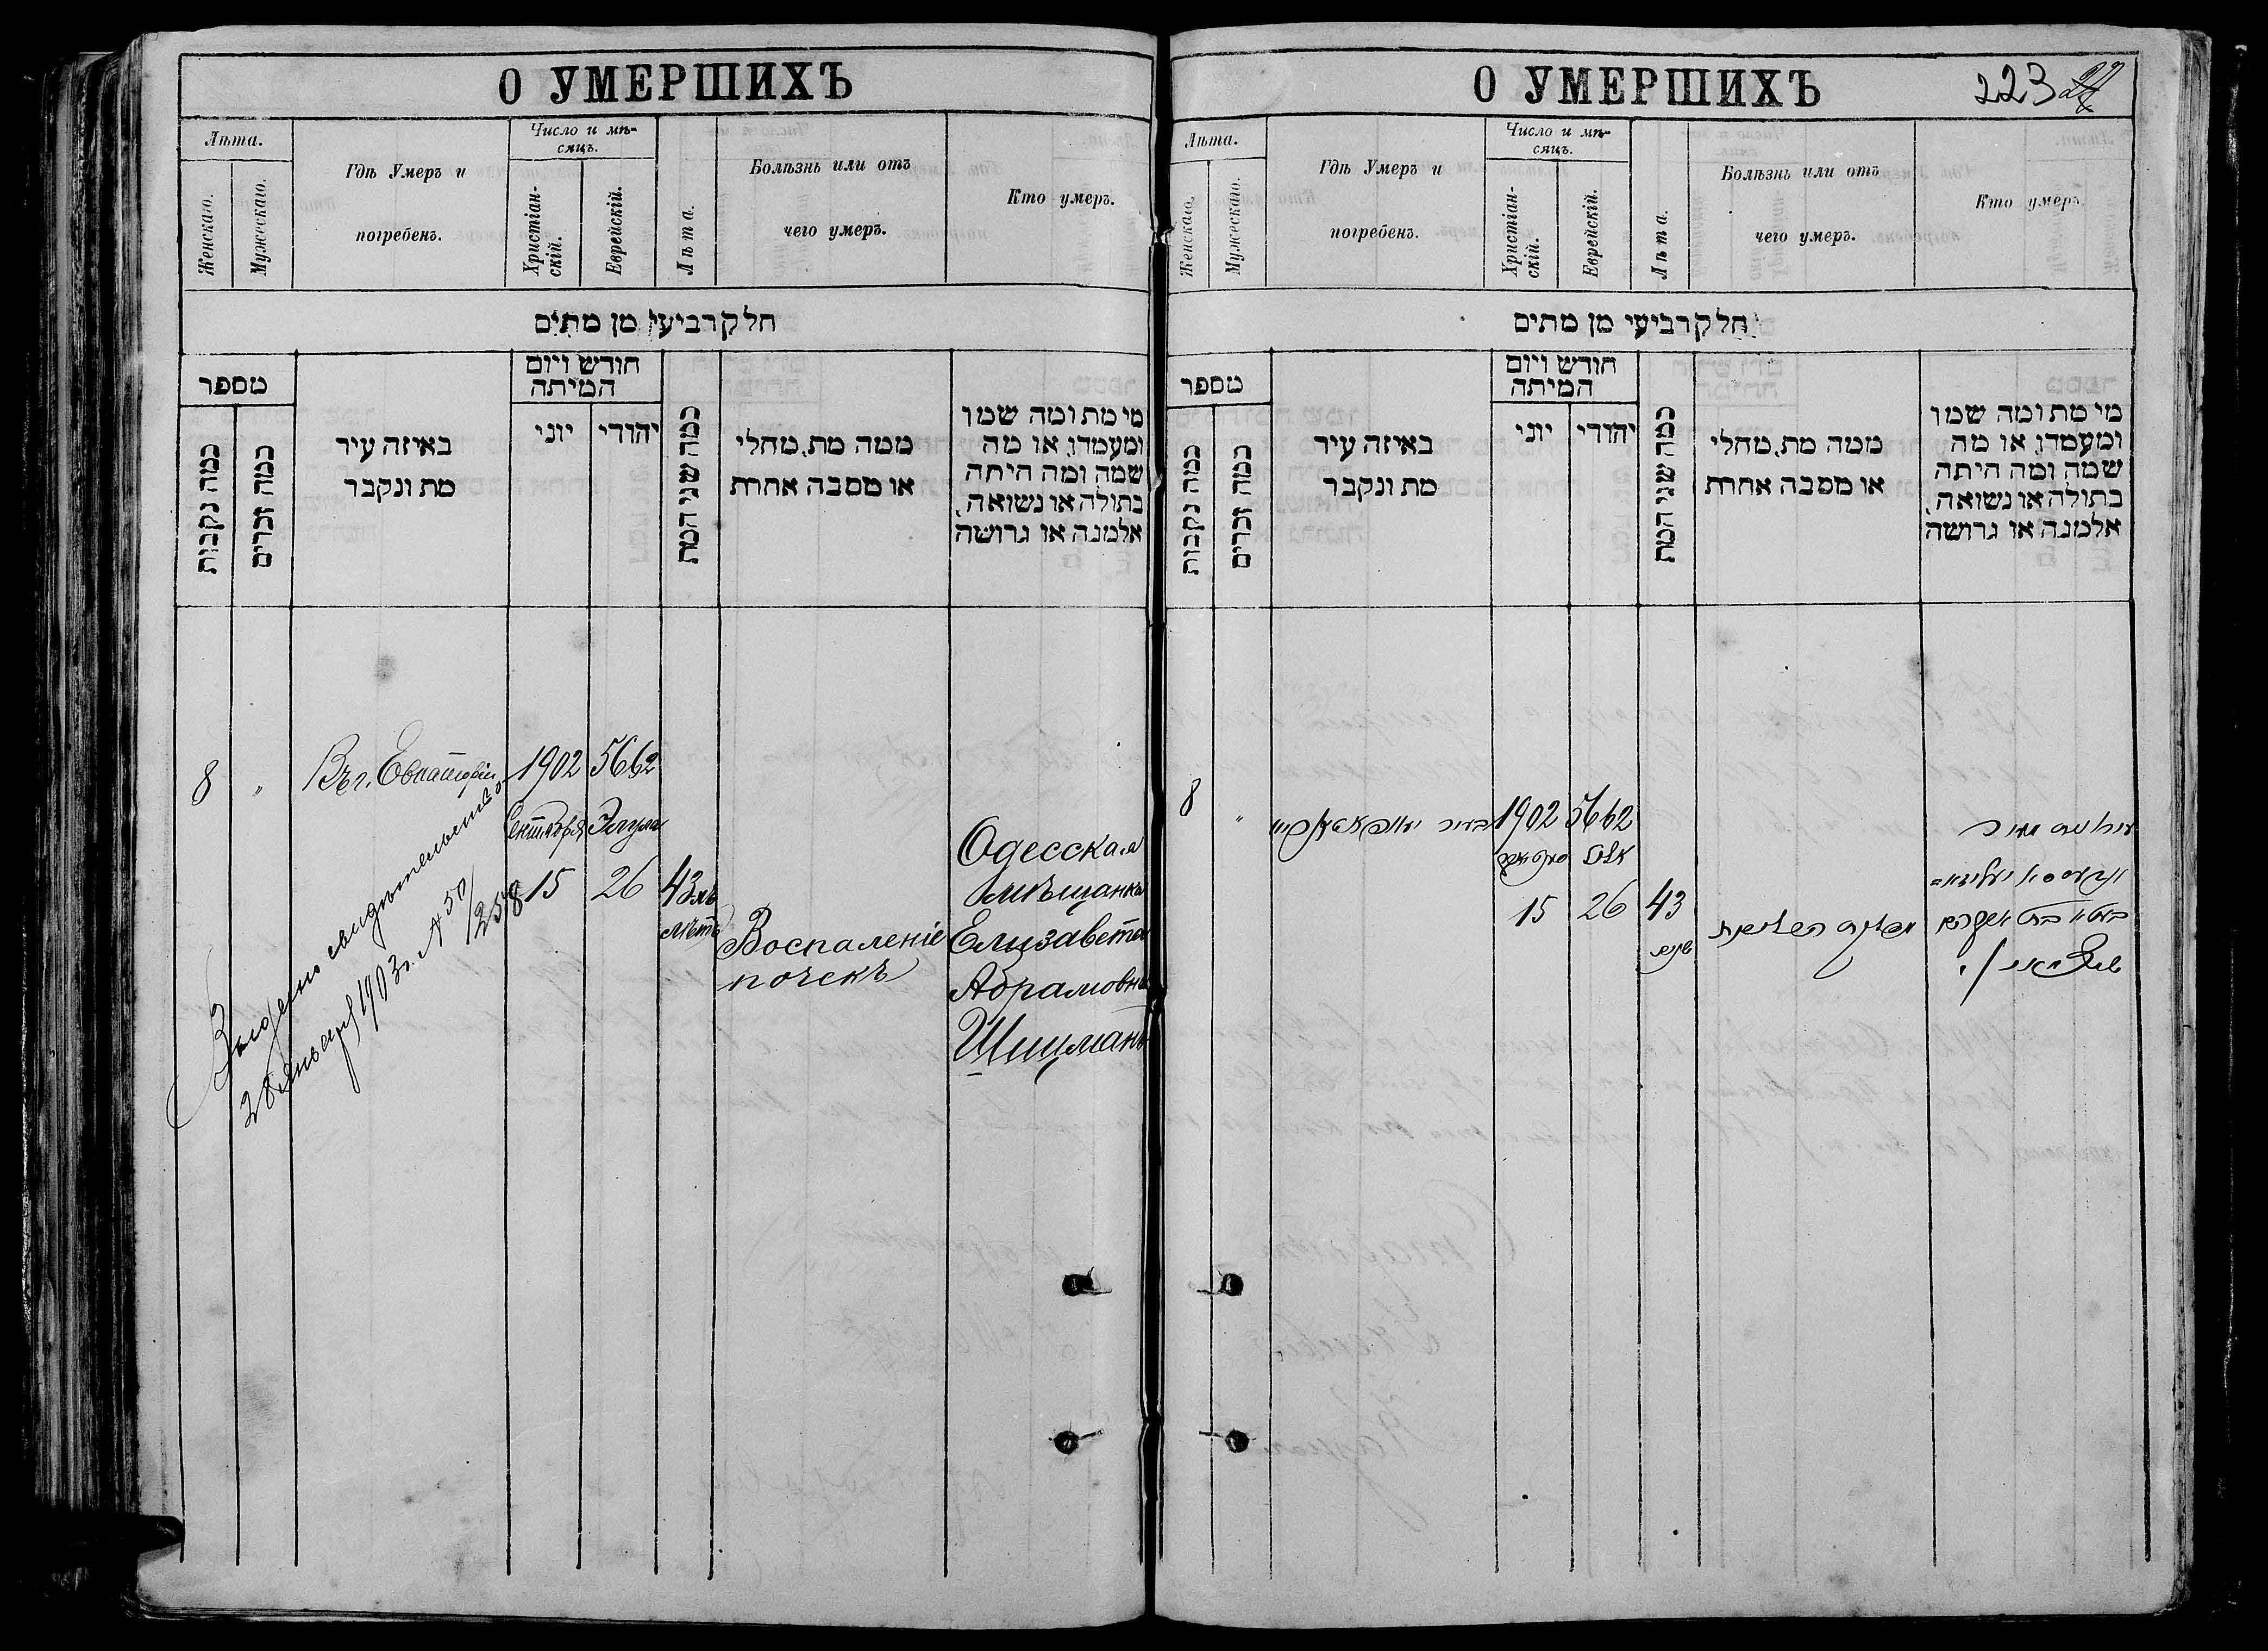 О УМЕРШИХЪ
Лѣта.
Женскаго.
Мужескаго.
Гдѣ Умеръ и
погребенъ.
Число и мѣ-
сяцъ.
Христіан-
скій.
Еврейскій.
Лѣта.
Болѣзнь или отъ
чего умеръ.
Кто умеръ.
חלק רביעי מן מתים
מספר
כמה נקבות
כמה זכרים
באיזה עיר
מת ונקבר
חודש ויום
המיתה
יוני
יהודי
כמה שני המת
ממה מת, מחלי
או מסבה אחרת
מי מת ומה שמו
ומעמדו, או מה
שמה ומה היתה
בתולה או נשואה,
אלמנה או גרושה
8
"
Въ г. Евпаторіи
1902
Сентября
15
5662
Элула
26
43хъ
лѣтъ
Воспаленіе
почекъ
Одесская
мѣщанка
Елизавета
Абрамовна
Шишманъ
Выдано свидѣтельство
28 января 1903 г. № 50/258
О УМЕРШИХЪ
223
Лѣта.
Женскаго.
Мужескаго.
Гдѣ Умеръ и
погребенъ.
Число и мѣ-
сяцъ.
Христіан-
скій.
Еврейскій.
Лѣта.
Болѣзнь или отъ
чего умеръ.
Кто умеръ.
חלק רביעי מן מתים
מספר
כמה נקבות
כמה זכרים
באיזה עיר
מת ונקבר
חודש ויום
המיתה
יוני
יהודי
כמה שני המת
ממה מת, מחלי
או מסבה אחרת
מי מת ומה שמו
ומעמדו, או מה
שמה ומה היתה
בתולה או נשואה,
אלמנה או גרושה
8
"
בעיר
1902
15
5662
אלול
26
43
שנים